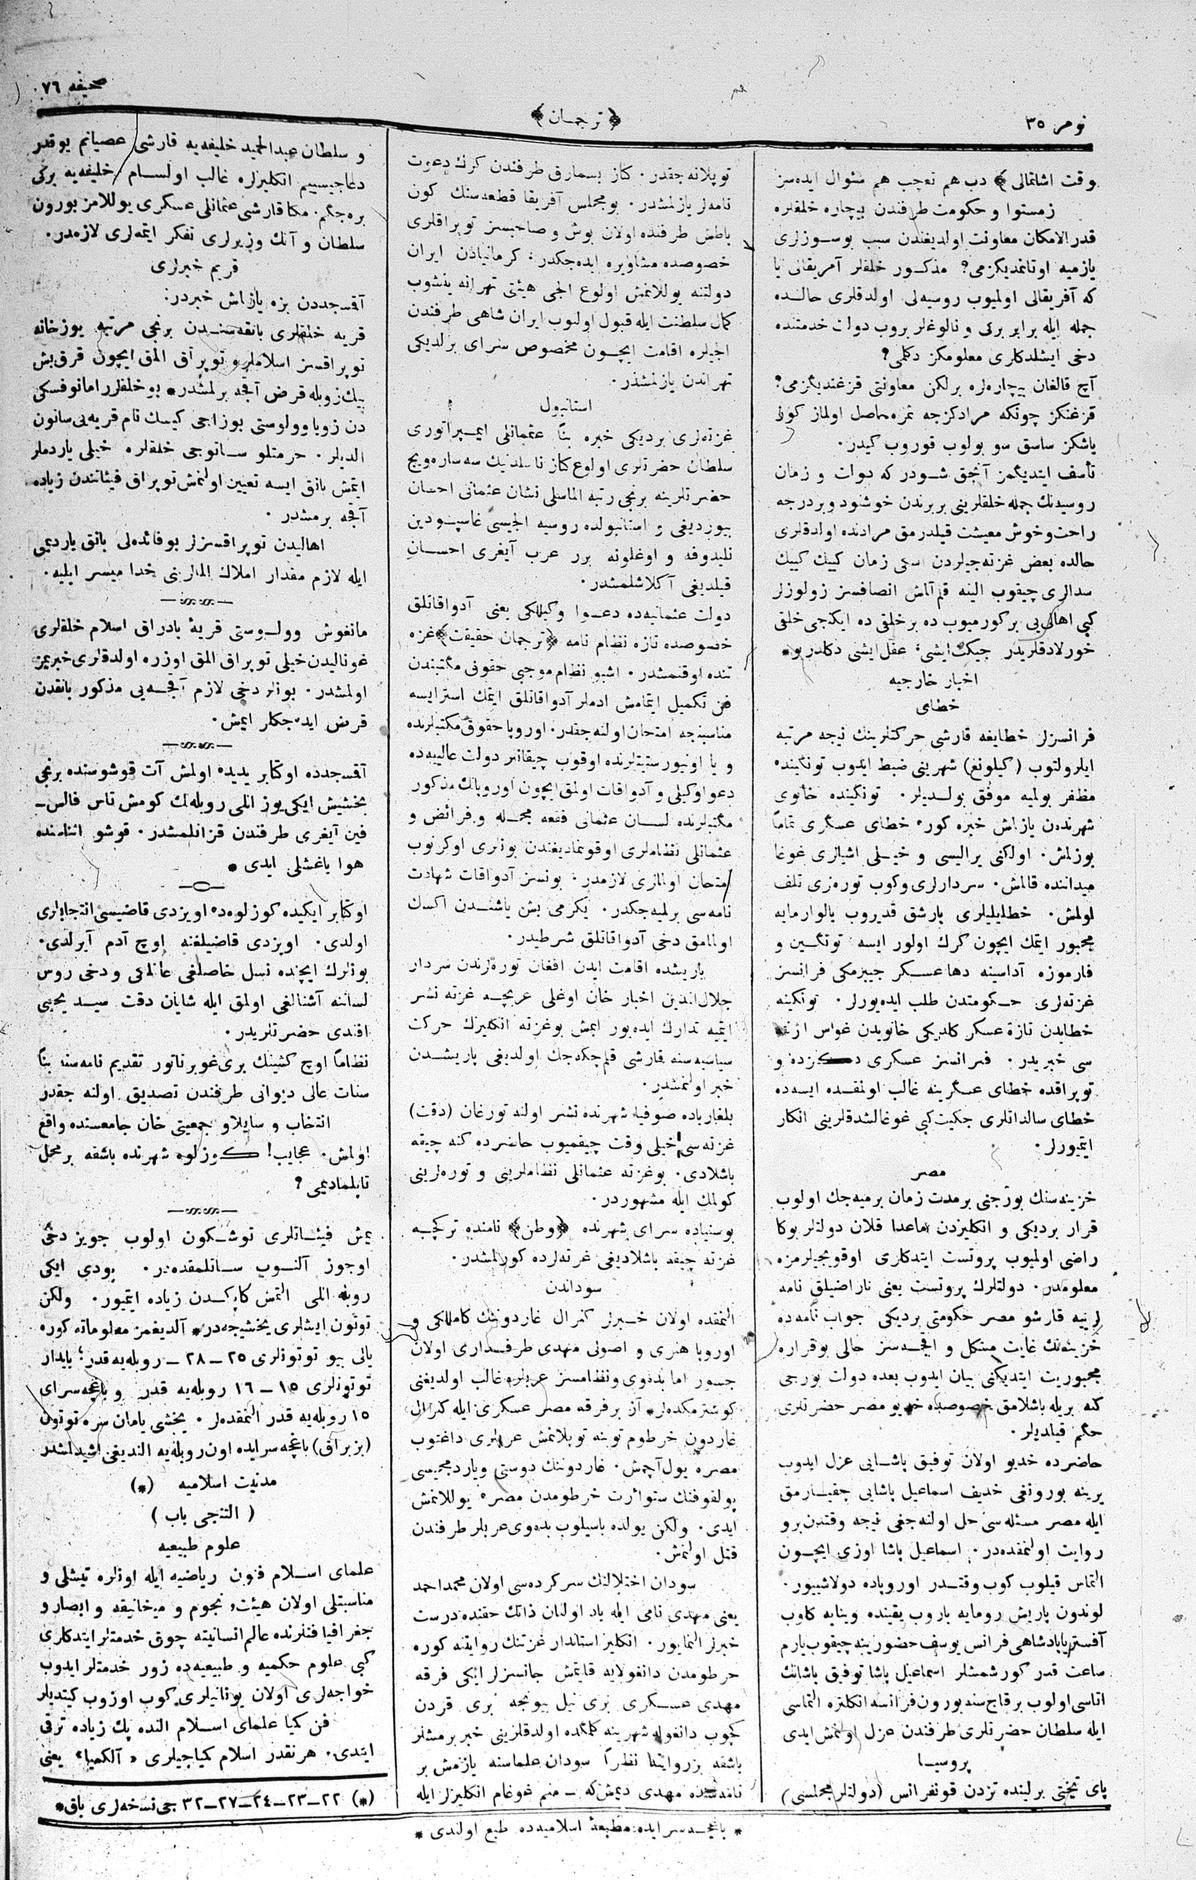 نومر ۳۵
﴿ ترجمان ﴾
صحیفه ۷٦
وقت اشاتمالی ﴾ دب هم تعجب هم سئوال ایده‌سز
زمستوا و حکومت طرفندن بیچاره خلقلره
قدر الامکان معاونت اولدیغندن سبب بو سوزلری
یازمیه اوتانمدیکزمی؟ مذکور خلقلر آمریقالی یا
که آفریقالی اولمیوب روسیه‌لی اولدقلری حالده
جمله ایله برابر برکی و نالوغلر بروب دولت خدمتنده
دخی ایشلدکلری معلومکز دکلمی؟
آچ قالغان بیچاره‌لره برلکن معاونتی قزغندیکزمی؟
قزغنکز چونکه مرادکزجه ثمره حاصل اولماز کوز
یاشکز ساسق سو بولوب قوروب کیدر.
تأسف ایتدیکمز آنجق شودر که دولت و زمان
روسیه‌نك جمله خلقلرینی بربرندن خوشنود و بر درجه
راحت و خوش معیشت قیلدرمق مرادنده اولدقلری
حالده بعض غزته‌جیلردن اسکی زمان کییك کییك
سدالری چیقوب الینه قلم آلمش انصافسز زولوزلر
کبی اهالی‌یی بر کورمیوب ده بر خلقی ده ایکنجی خلقی
خورلادقلریدر جیك ایشی؛ عقل ایشی دکلدر بو*
اخبار خارجیه
خطای
فرانسزلر خطایغه قارشی حرکتلرینك نیجه مرتبه
ایلرولتوب (کیلونغ) شهرینی ضبط ایدوب تونکینده
مظفر بولمیه موفق بولدیلر. تونکینده خانوی
شهرندن یازلمش خبره کوره خطای عسکری تماماً
بوزلمش. اولکنی برالیسی و خیلی اشیالری غوغا
میداننده قالمش. سردارلری و کوب توره‌لری تلف
اولمش. خطایلیلری بارشق قدیروب یالوارمایه
مجبور ایتمك ایچون کرك اولور ایسه تونکین و
فارموزه آداسینه دها عسکر جیبرمکی فرانسز
غزته‌لری حکومتدن طلب ایده‌یورلر. تونکینه
خطایدن تازه عسکر کلدیکی خانویدن غواس آژنه
سی خبریدر. فرانسز عسکری دکزده و
توپراقده خطای عسکرینه غالب اولنمقده ایسه‌ده
خطای سالداتلری جکیت کبی غوغالشدقلرینی انکار
ایتمیورلر.
مصر
خزینه‌سنك بورجنی بر مدت زمان برمیه‌جك اولوب
قرار بردیکی و انکلیزدن ماعدا قلان دولتلر بوکا
راضی اولمیوب پروتست ایتدکلری اوقویجیلرمزه
معلومدر. دولتلرك پروتست یعنی ناراضیلق نامه
لرینه قارشو مصر حکومتی بردیکی جواب نامه‌ده
خزینه‌نك غایت مشکل و اقچه‌سز حالی بو قراره
مجبوریت ایتدیکنی بیان ایدوب بعده دولت بورجی
کنه بریله باشلامق خصوصیده خدیو مصر حضرتلری
حکم قیلدیلر.
حاضرده خدیو اولان توفیق پاشایی عزل ایدوب
یرینه بورونغی خدیف اسماعیل پاشایی چقیارمق
ایله مصر مسئله‌سی حل اولنه‌جغی نیجه وقتدن برو
روایت اولنمقده‌در. اسماعیل پاشا اوزی ایچون
التماس قیلوب کوب وقتدر اوروپاده دولاشییور.
لوندون پاریش رومایه باروب یقینده وینایه کلوب
آفستریا پادشاهی فرانس یوسف حضورینه چیقوب یارم
ساعت قدر کورشمشلر اسماعیل پاشا توفیق پاشانك
اتاسی اولوب بر قاچ سنه بورون فرانسه انکلتره التماسی
ایله سلطان حضرتلری طرفندن عزل اولنمش ایدی
پروسیا
پای تیختی برلینده تزدن قونفرانس (دولتلر مجلسی)
توپلانه‌جقدر. کناز بسمارق طرفندن کرك دعوت
نامه‌لر یازلمشدر. بو مجلس آفریقا قطعه‌سنك کون
باطش طرفنده اولان بوش و صاحبسز توپراقلری
خصوصده مشاوره ایده‌جکدر: کرمانیادن ایران
دولتنه یوللانمش اولوغ الجی هیئتی تهرانه یتشوب
کمال سلطنت ایله قبول اولنوب ایران شاهی طرفندن
اجیلره اقامت ایچون مخصوص سرای برلدیکی
تهراندن یازلمشدر.
استانبول
غزته‌لری بردیکی خبره بناً عثمانلی ایمپراتوری
سلطان حضرتلری اولوغ کناز ناسلدنیك سه‌ساره‌ویچ
حضرتلرینه برنجی رتبه الماسلی نشان عثمانی احسان
بیوردیغی و استانبولده روسیه الجیسی غاسپودین
نلیدوفه و اوغلونه برر عرب آیغری احسان
قیلدیغی آکلاشلمشدر.
دولت عثمانیه‌ده دعوا وکیللکی یعنی آدواقاتلق
خصوصده تازه نظام نامه ﴿ترجمان حقیقت﴾ غزه
تنده اوقنمشدر. اشبو نظام موجبی حقوقی مکتبندن
فن تکمیل ایتمامش ادملر آدواقاتلق ایتمك استر ایسه
مناسبتجه امتحان اولنه‌جقدر. اوروپا حقوق مکتبلرنده
و یا اونیورستیتلرنده اوقوب چیقانلر دولت عالییه‌ده
دعوا وکیلی و آدواقات اولمق ایچون اوروپانك مذکور
مکتبلرنده لسان عثمانی فقعه مجله و فرائض و
عثمانلی نظاملری اوقونمادیغندن بونلری اوکرنوب
امتحان اولمازی لازمدر: بونسز آدواقات شهادت
نامه‌سی برلمیه‌جکدر. یکرمی بش یاشندن اکسك
اولمامق دخی آدواقاتلق شرطیدر.
پاریشده اقامت ایدن افغان توره‌لرندن سردار
جلال‌الدین اخبار خان اوغلی عربچه غزته نشر
ایتمیه تدارك ایده‌یور ایمش بو غزته انکلیزك حرکت
سیاسیه‌سنه قارشی قلمچکه‌جك اولدیغی پاریشدن
خبر اولنمشدر.
بلغاریاده صوفیه شهرنده نشر اولنه تورغان (دقت)
غزته‌سی خیلی وقت چیقمیوب حاضرده کنه چیقه
باشلادی. بو غزته عثمانلی نظاملرینی و توره‌لرینی
کولمك ایله مشهوردر.
بوسنیاده سرای شهرنده ﴿وطن﴾ نامنده ترکچه
غزته چیقه باشلادیغی غزته‌لرده کورلمشدر.
سوداندن
المقده اولان خبرلر کنرال غاردونك کاملکی و
اوروپا هنری و اصولی مهدی طرفداری اولان
جسور اما بده‌وی و نظامسز عربلره غالب اولدیغی
کوسترمکده‌لر* آز بر فرقه مصر عسکری ایله کنرال
غاردون خرطوم توبنه توپلانمش عربلری داغتوب
مصره یول آچمش. غاردونك دوستی و یاردمجیسی
پولقوفنك ستوارت خرطومدن مصره یوللانمش
ایدی. ولکن یولده باسیلوب بده‌وی عربلر طرفندن
قتل اولنمش.
سودان اختلالنك سرکرده‌سی اولان محمد احمد
یعنی مهدی نامی ایله یاد اولنان ذاتك حقنده درست
خبرلر المایور. انکلیز استاندار غزتنك روایتنه کوره
خرطومدن دانغولایه قایتمش جانسزلر ایکی فرقه
مهدی عسکری بری نیل بیونجه بری قردن
کجوب دانغوله شهرینه کلمکده اولدقلرینی خبر برمشلر
باشقه بر روایتنا نظراً سودان علماسنه یازمش بر
نامه‌سنده مهدی دیمش‌که – منم غوغام انکلیزلر ایله
و سلطان عبدالحمید خلیفه‌یه قارشی عصیانم یوقدر
دعاجیسییم انکلیزلره غالب اولسام خلیفه‌یه برکی
بره‌جکم. مکا قارشی عثمانلی عسکری یوللامز بورون
سلطان و آنك وزیرلری تفکر ایتمه‌لری لازمدر.
قریم خبرلری
آقسجددن بزه یازلمش خبردر:
قریه خلقلری بانقه‌سندن برنجی مرتبه یوزخانه
توپراقسز اسلاملره توپراق المق ایچون قرق بش
بیك روبله قرض آقچه برلمشدر* بو خلقلر رامانوفسکی
دن زویا وولوستی بوزاجی کیسك نام قریه‌یی ساتون
الدیلر. حرمتلو ساتوجی خلقلره خیلی یاردملر
ایتمش بانق ایسه تعیین اولنمش توپراق فیئاتندن زیاده
آقچه برمشدر.
اهالیدن توپراقسزلر بو فائده‌لی بانق یاردیمی
ایله لازم مقدار املاك المارینی خدا میسر ایلیه.
مانغوش وولوستی قریهٔ بادراق اسلام خلقلری
غوتالیدن خیلی توپراق المق اوزره اولدقلری خبریمز
اولمشدر. بونلر دخی لازم آقچه‌یی مذکور بانقدن
قرض ایده‌جکلر ایمش.
آقسجدده اوکتابر یدیده اولمش آت قوشوسنده برنجی
بخشیش ایکی یوز اللی روبله‌لك کومش تاس فالس-
فین آیغری طرفندن قزانلمشدر. قوشو اثناسنده
هوا یاغشلی ایدی *
اوکتابر ایکیده کوزلوه‌ده اویزدی قاضیسی انتخابلری
اولدی. اویزدی قاضیلغنه اوچ آدم آیرلدی.
بونلرك ایچنده نسل خاصلغی عالملغی و دخی روس
لسانه آشنالغی اولمق ایله شایان دقت سید یحیی
افندی حضرتلریدر.
نظاماً اوچ کشینك بری غوبرناتور تقدیم نامه‌سنه بناً
سنات عالی دیوانی طرفندن تصدیق اولنه جقدر
انتخاب و سایلاو جمعیتی خان جامعسنده واقع
اولمش. عجایب! کوزلوه شهرنده باشقه بر محل
تابلمادیمی؟
یمش فیئاتلری توشکون اولوب جویز دخی
اوجوز آلنوب ساتلمقده‌در. بودی ایکی
روبله اللی التمش کاپکدن زیاده ایتمیور. ولکن
توتون ایشلری یخشیجه‌در* آلدیغمز معلوماته کوره
یالی بیو توتونلری ۲۵ – ۲۸ – روبله‌یه قدر؛ بایدار
توتونلری ۱۵ – ۱٦ روبله‌یه قدر و باغچه سرای
۱۵ روبله‌یه قدر المقده‌لر. یخشی یامان سره توتون
(بزبراق) باغچه سرایده اون روبله‌یه الندیغی اشیدلمشدر
مدنیت اسلامیه (*)
( التنجی باب )
علوم طبیعیه
علمای اسلام فنون ریاضیه ایله اونلره تیشلی و
مناسبتلی اولان هیئت، نجوم و میخانیقه و ابصار و
جغرافیا فنلرنده عالم انسانیته چوق خدمتلر ایتدکلری
کبی علوم حکمیه و طبیعیه‌ده زور خدمتلر ایدوب
خواجه‌لری اولان یونانیلری کوب اوزوب کیتدیلر
فن کمیا علمای اسلام النده پك زیاده ترقی
ایتدی. هرنقدر اسلام کمیاجیلری «آلکمیا» یعنی
(*) ۲۲–۲۳–۲٤–۲۷–۳۲ جی نسخه‌لری باق*
* باغچه سرایده مطبعهٔ اسلامیه‌ده طبع اولندی *